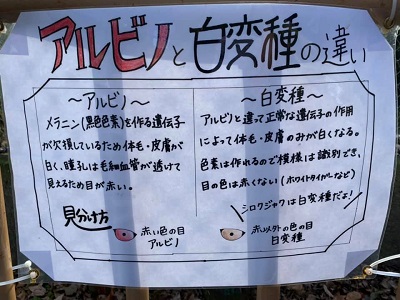 アルビノと白変種の違い
～アルビノ～
メラニン(黒色素)を作る遺伝子
が欠損しているため体毛・皮膚が
白く、瞳孔は毛細血管が透けて
見えるため目が赤い。
見分け方
赤い色の目
アルビノ
～白変種～
アルビノと違って正常な遺伝子の作用
によって体毛・皮膚のみが白くなる。
色素は作れるので模様は識別でき、
目の色は赤くない(ホワイトタイガーなど)
シロクジャクは白変種だよ!
赤以外の色の目
白変種